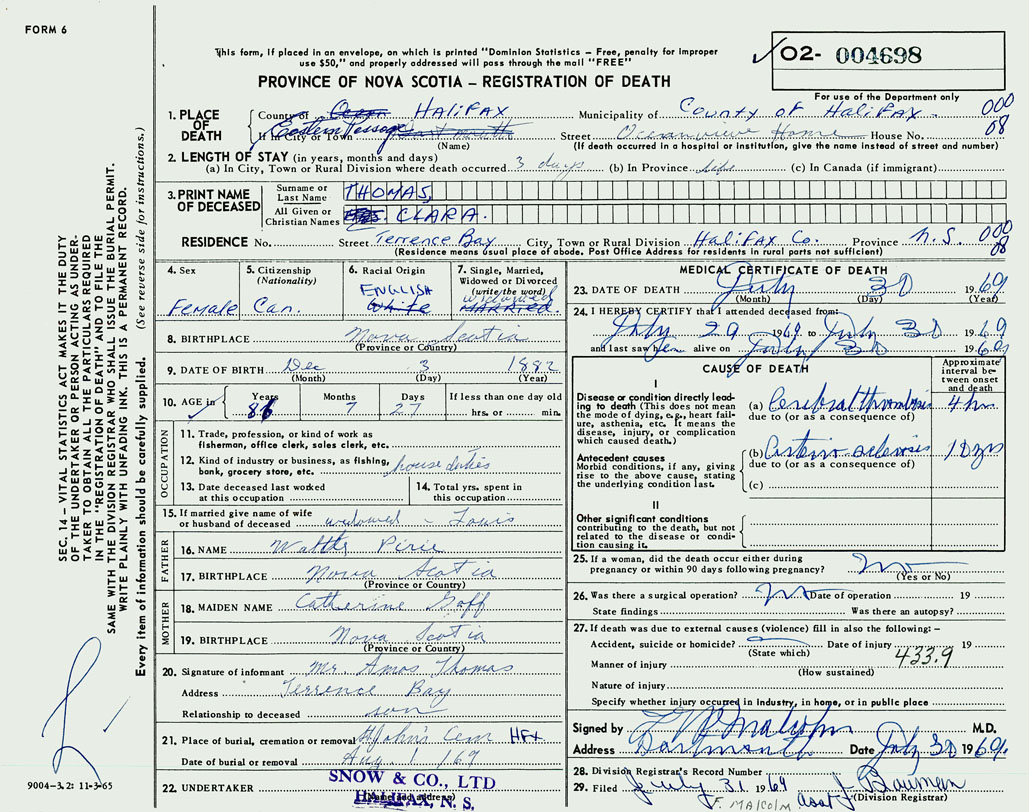 FORM 6
This form, if placed in an envelope, on which is printed "Dominion Statistics – Free, penalty for improper
use $50," and properly addressed will pass through the mail "FREE"
O2- 004698
For use of the Department only
PROVINCE OF NOVA SCOTIA – REGISTRATION OF DEATH
1. PLACE OF DEATH
County of HALIFAX Municipality of County of Halifax. 000
If in City or Town Eastern Passage Street Oceanview Home House No. 08
(Name) (If death occurred in a hospital or institution, give the name instead of street and number)
2. LENGTH OF STAY (in years, months and days)
(a) In City, Town or Rural Division where death occurred 3 days (b) In Province life (c) In Canada (if immigrant)
3. PRINT NAME OF DECEASED
Surname or Last Name THOMAS,
All Given or Christian Names CLARA.
RESIDENCE No. Street Terrence Bay City, Town or Rural Division Halifax Co. Province N.S. 000 08
(Residence means usual place of abode. Post Office Address for residents in rural parts not sufficient)
4. Sex
Female
5. Citizenship
(Nationality)
Can.
6. Racial Origin
ENGLISH
White
7. Single, Married,
Widowed or Divorced
(write the word)
widowed
MARRIED
8. BIRTHPLACE Nova Scotia
(Province or Country)
9. DATE OF BIRTH Dec 3 1882
(Month) (Day) (Year)
10. AGE in Years 86 Months 7 Days 27 If less than one day old
hrs. or min.
OCCUPATION
11. Trade, profession, or kind of work as
fishermen, office clerk, sales clerk, etc.
12. Kind of industry or business, as fishing,
bank, grocery store, etc. house duties
13. Date deceased last worked
at this occupation
14. Total yrs. spent in
this occupation
15. If married give name of wife
or husband of deceased widowed – Louis
FATHER
16. NAME Walter Pirie
17. BIRTHPLACE Nova Scotia
(Province or Country)
MOTHER
18. MAIDEN NAME Catherine Goff
19. BIRTHPLACE Nova Scotia
(Province or Country)
20. Signature of informant Mr. Amos Thomas
Address Terrence Bay
Relationship to deceased son
21. Place of burial, cremation or removal St John's Cem HFX
Date of burial or removal Aug 1/69
22. UNDERTAKER SNOW & CO., LTD
HALIFAX, N. S.
(Name and address)
MEDICAL CERTIFICATE OF DEATH
23. DATE OF DEATH July 30 1969
(Month) (Day) (Year)
24. I HEREBY CERTIFY that I attended deceased from:
July 29 1969 to July 30 1969
and last saw her alive on July 30 1969
CAUSE OF DEATH
Approximate
interval between onset
and death
I
Disease or condition directly leading to death (This does not
mean the mode of dying, e.g., heart failure, asthenia, etc. It means the
disease, injury, or complication
which caused death.)
(a) Cerebral thrombosis 4 hrs
due to (or as a consequence of)
Antecedent causes
Morbid conditions, if any, giving
rise to the above cause, stating
the underlying condition last.
(b) Arterio sclerosis 10 yrs
due to (or as a consequence of)
(c)
II
Other significant conditions
contributing to the death, but not
related to the disease or condition causing it.
25. If a woman, did the death occur either during
pregnancy or within 90 days following pregnancy? No
(Yes or No)
26. Was there a surgical operation? No Date of operation 19
State findings Was there an autopsy?
27. If death was due to external causes (violence) fill in also the following: –
Accident, suicide or homicide? Date of injury 19
(State which) 433.9
Manner of injury
(How sustained)
Nature of injury
Specify whether injury occurred in Industry, in home, or in public place
Signed by F Malcolm M.D.
Address Dartmouth Date July 30 1969
28. Division Registrar's Record Number
29. Filed July 31 1969 J. Bauman
F. MALCOLM asst (Division Registrar)
SEC. 14 – VITAL STATISTICS ACT MAKES IT THE DUTY
OF THE UNDERTAKER OR PERSON ACTING AS UNDERTAKER TO OBTAIN ALL THE PARTICULARS REQUIRED
IN THE "REGISTRATION OF DEATH" AND FILE THE
SAME WITH THE DIVISION REGISTRAR WHO SHALL ISSUE THE BURIAL PERMIT.
WRITE PLAINLY WITH UNFADING INK. THIS IS A PERMANENT RECORD.
Every item of information should be carefully supplied. (See reverse side for instructions.)
9004-3,2: 11-3-65